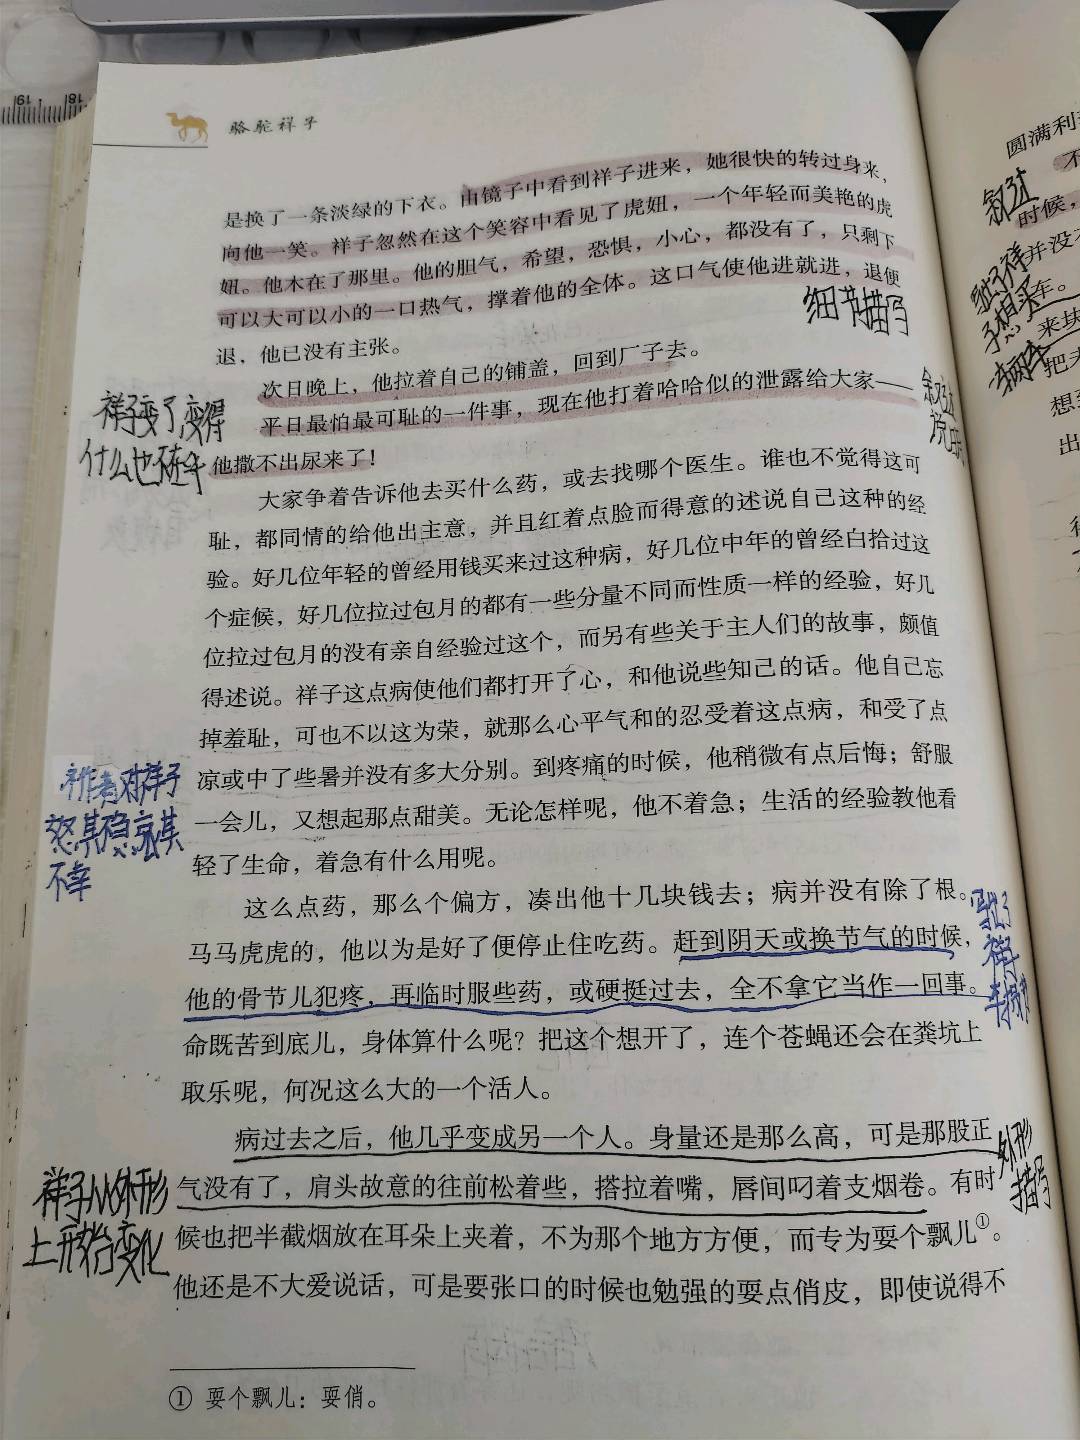 骆驼祥子
是换了一条淡绿的下衣。由镜子中看到祥子进来，她很快的转过身来，
向他一笑。祥子忽然在这个笑容中看见了虎妞，一个年轻而美艳的虎
妞。他木在了那里。他的胆气，希望，恐惧，小心，都没有了，只剩下
可以大可以小的一口热气，撑着他的全体。这口气使他进就进，退便
退，他已没有主张。
细节描写
次日晚上，他拉着自己的铺盖，回到厂子去。
平日最怕最可耻的一件事，现在他打着哈哈似的泄露给大家——
他撒不出尿来了！
叙述
祥子变了，变得
什么也不在乎
大家争着告诉他去买什么药，或去找哪个医生。谁也不觉得这可
耻，都同情的给他出主意，并且红着点脸而得意的述说自己这种的经
验。好几位年轻的曾经用钱买来过这种病，好几位中年的曾经白拾过这
个症候，好几位拉过包月的都有一些分量不同而性质一样的经验，好几
位拉过包月的没有亲自经验过这个，而另有些关于主人们的故事，颇值
得述说。祥子这点病使他们都打开了心，和他说些知己的话。他自己忘
掉羞耻，可也不以这为荣，就那么心平气和的忍受着这点病，和受了点
凉或中了些暑并没有多大分别。到疼痛的时候，他稍微有点后悔；舒服
一会儿，又想起那点甜美。无论怎样呢，他不着急；生活的经验教他看
轻了生命，着急有什么用呢。
作者对祥子
怒其 哀其
不幸
这么点药，那么个偏方，凑出他十几块钱去；病并没有除了根。
马马虎虎的，他以为是好了便停止住吃药。赶到阴天或换节气的时候，
他的骨节儿犯疼，再临时服些药，或硬挺过去，全不拿它当作一回事。
命既苦到底儿，身体算什么呢？把这个想开了，连个苍蝇还会在粪坑上
取乐呢，何况这么大的一个活人。
祥子
病过去之后，他几乎变成另一个人。身量还是那么高，可是那股正
气没有了，肩头故意的往前松着些，搭拉着嘴，唇间叼着支烟卷。有时
候也把半截烟放在耳朵上夹着，不为那个地方方便，而专为耍个飘儿①。
他还是不大爱说话，可是要张口的时候也勉强的耍点俏皮，即使说得不
外形
描写
祥子从外形
上开始变化
① 耍个飘儿：耍俏。
圆满利
不
时候，
并没
车。
来块
把夫
想
出
叙述